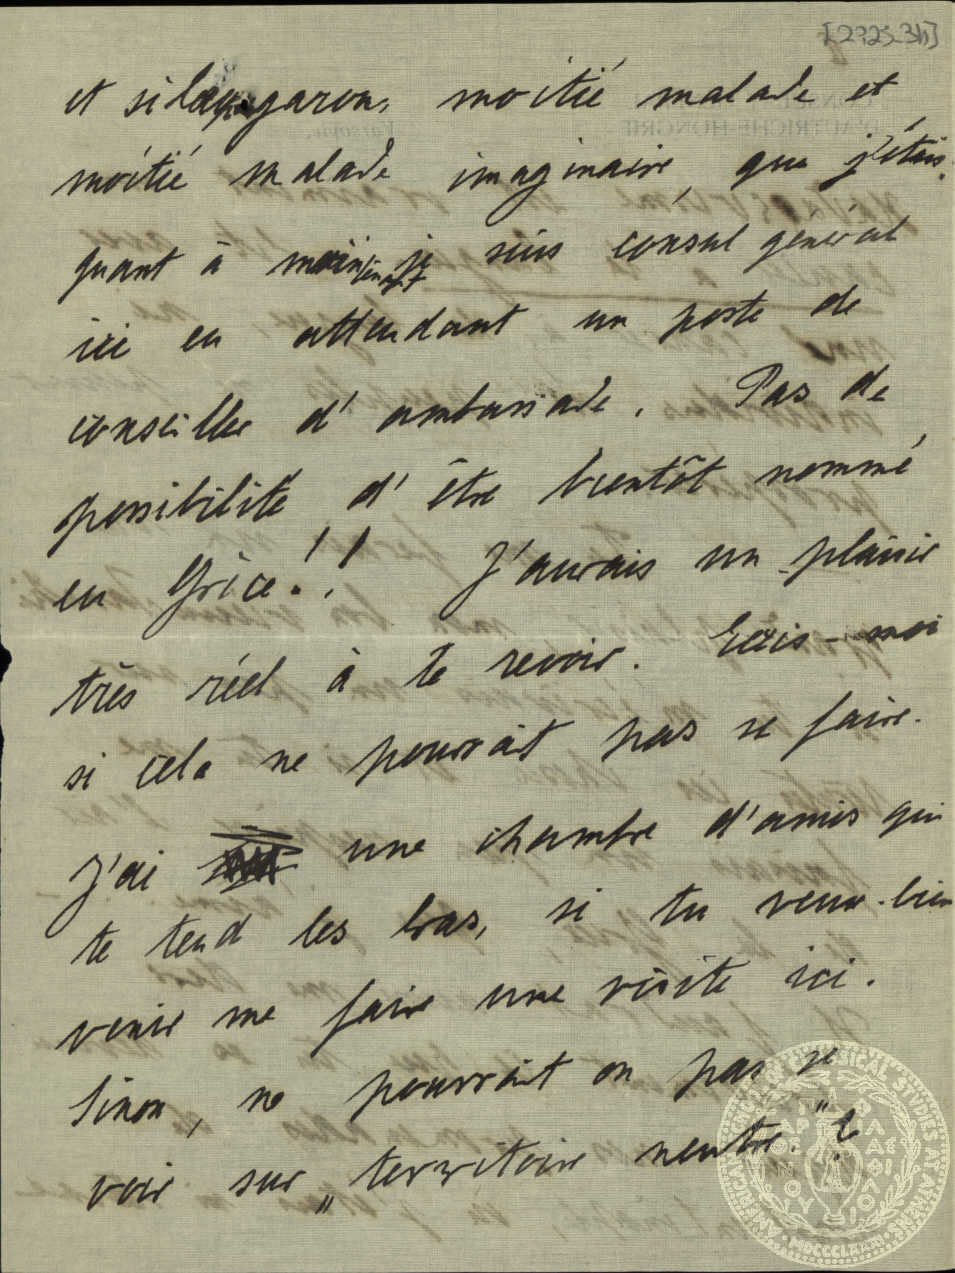 [2725-34]
et si garçon, moitié malade et
moitié malade imaginaire, que j'étais.
quant à moi je suis consul général
ici en attendant un poste de
conseiller d'ambassade. Pas de
possibilité d'être bientôt nommé
en Grèce!! J'aurais un plaisir
très réel à te revoir. Ecris-moi
si cela ne pourrait pas se faire.
J'ai une chambre d'amis qui
te tend les bras, si tu veux bien
venir me faire une visite ici.
Sinon, ne pourrait on pas se
voir sur "territoire neutre"?
AMERICAN SCHOOL OF CLASSICAL STUDIES AT ATHENS
MDCCCLXXXI
ΠΑΡΘΕΝΟΥ ΦΙΛΑΣ ΦΙΛΟΙ